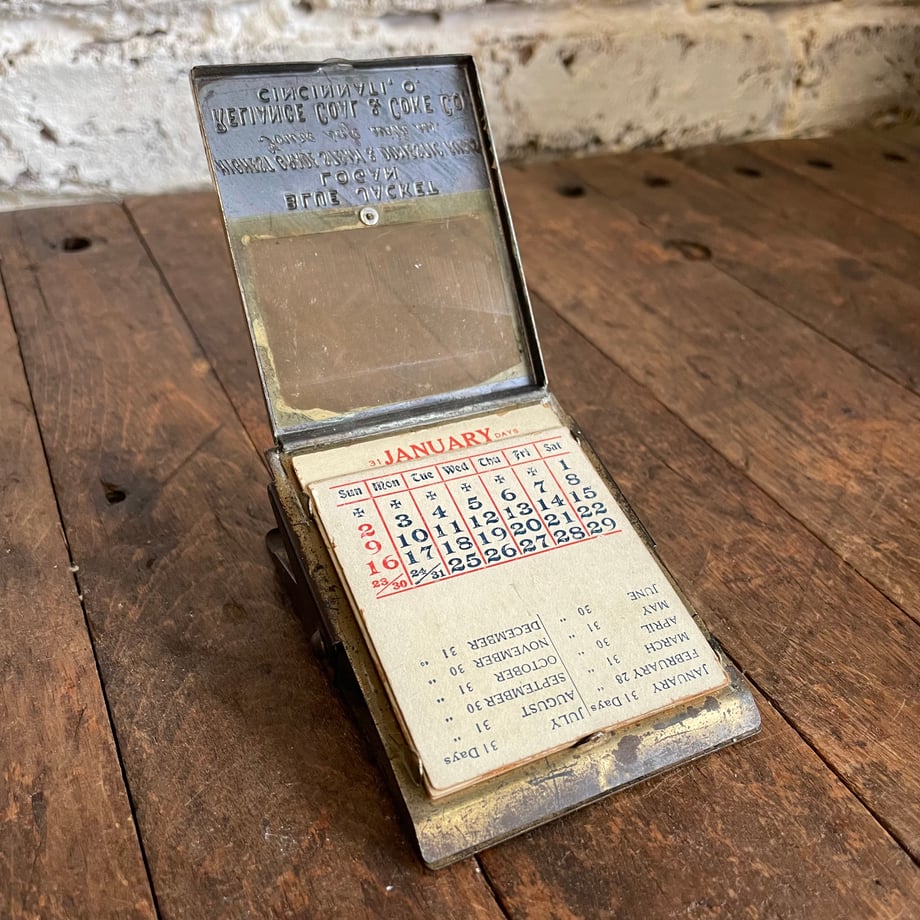 BLUE JACKET
LOGAN
HIGHEST GRADE STEAM & DOMESTIC COALS
RELIANCE COAL & COKE CO.
CINCINNATI, O.
31 JANUARY DAYS
Sun Mon Tue Wed Thu Fri Sat
✠ ✠ ✠ ✠ ✠ ✠ 1
2 3 4 5 6 7 8
9 10 11 12 13 14 15
16 17 18 19 20 21 22
23/30 24/31 25 26 27 28 29
JANUARY 31 Days JULY 31 Days
FEBRUARY 28 " AUGUST 31 "
MARCH 31 " SEPTEMBER 30 "
APRIL 30 " OCTOBER 31 "
MAY 31 " NOVEMBER 30 "
JUNE 30 " DECEMBER 31 "